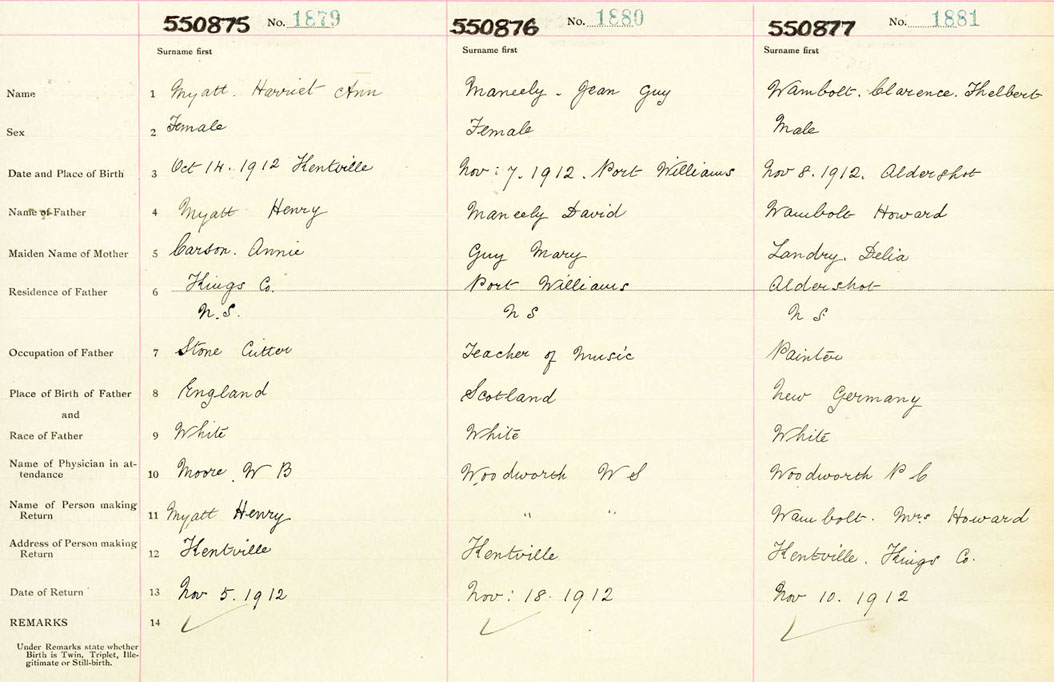 550875 No. 1879 550876 No. 1880 550877 No. 1881
Surname first Surname first Surname first
Name 1 Myatt. Harriet Ann Maneely - Jean Guy Wambolt. Clarence. Thelbert
Sex 2 Female Female Male
Date and Place of Birth 3 Oct 14. 1912 Kentville Nov: 7. 1912. Port Williams Nov 8. 1912. Aldershot
Name of Father 4 Myatt Henry Maneely David Wambolt Howard
Maiden Name of Mother 5 Carson. Annie Guy Mary Landry. Delia
Residence of Father 6 Kings Co. Port Williams Aldershot
N.S. N S N S
Occupation of Father 7 Stone Cutter Teacher of Music Painter
Place of Birth of Father 8 England Scotland New Germany
and
Race of Father 9 White White White
Name of Physician in at-
tendance 10 Moore. W B Woodworth W S Woodworth P C
Name of Person making
Return 11 Myatt Henry " " Wambolt. Mrs Howard
Address of Person making
Return 12 Kentville Kentville Kentville. Kings Co.
Date of Return 13 Nov 5. 1912 Nov: 18. 1912 Nov 10. 1912
REMARKS 14
Under Remarks state whether
Birth is Twin, Triplet, Ille-
gitimate or Still-birth.